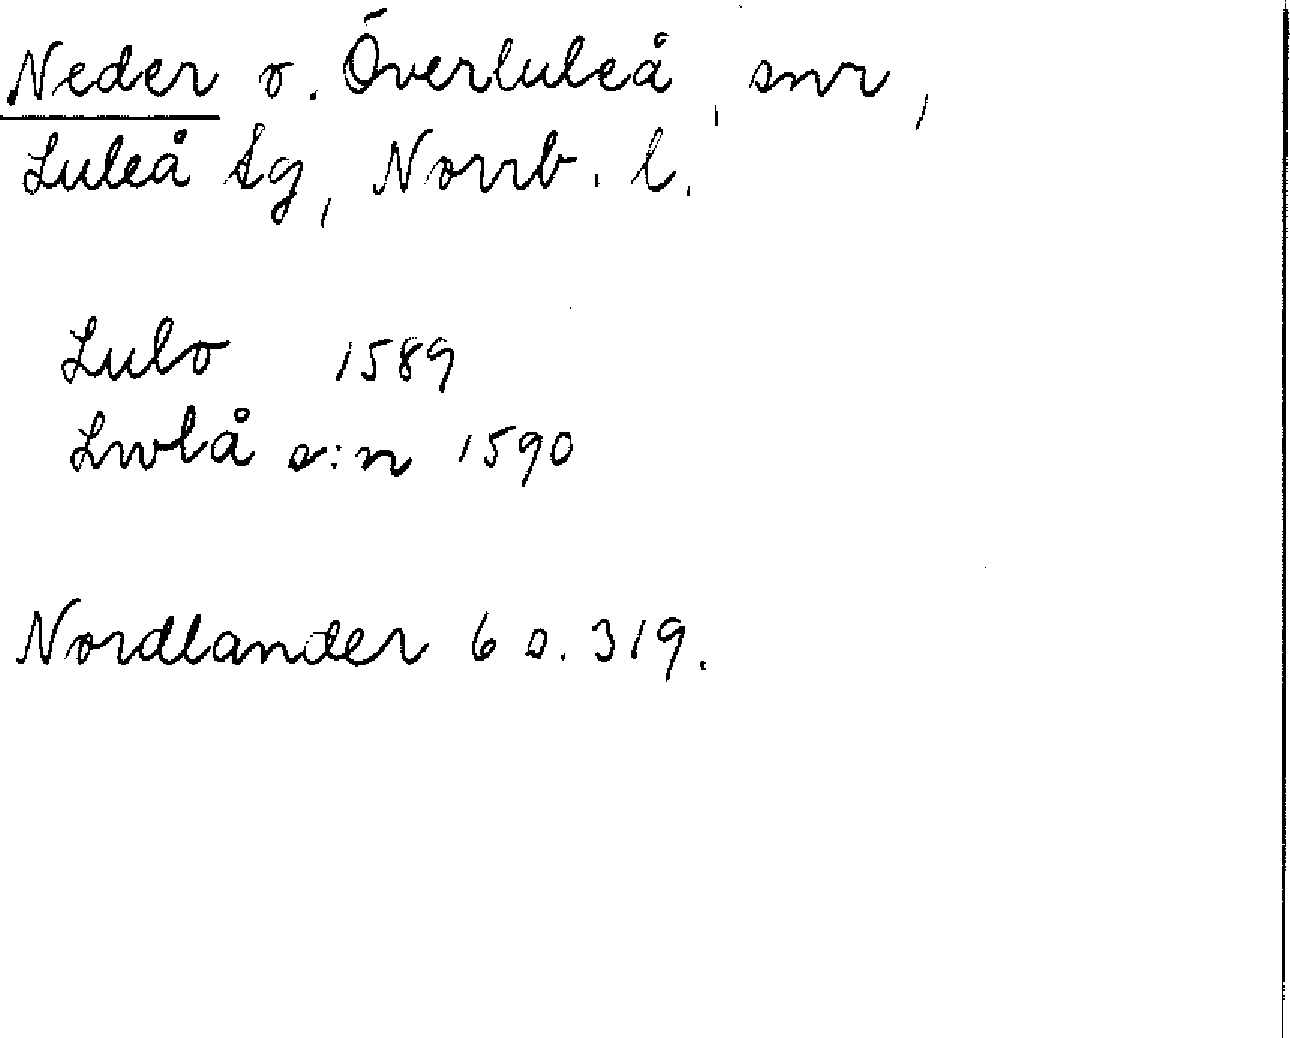 Neder o. Överluleå, snr,
Luleå tg, Norrb. l.
Lulo 1589
Lwlå s:n 1590
Nordlander 6 s. 319.